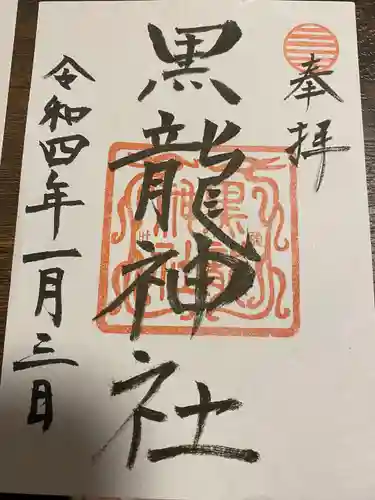 奉拝
黒龍神社
令和四年一月三日